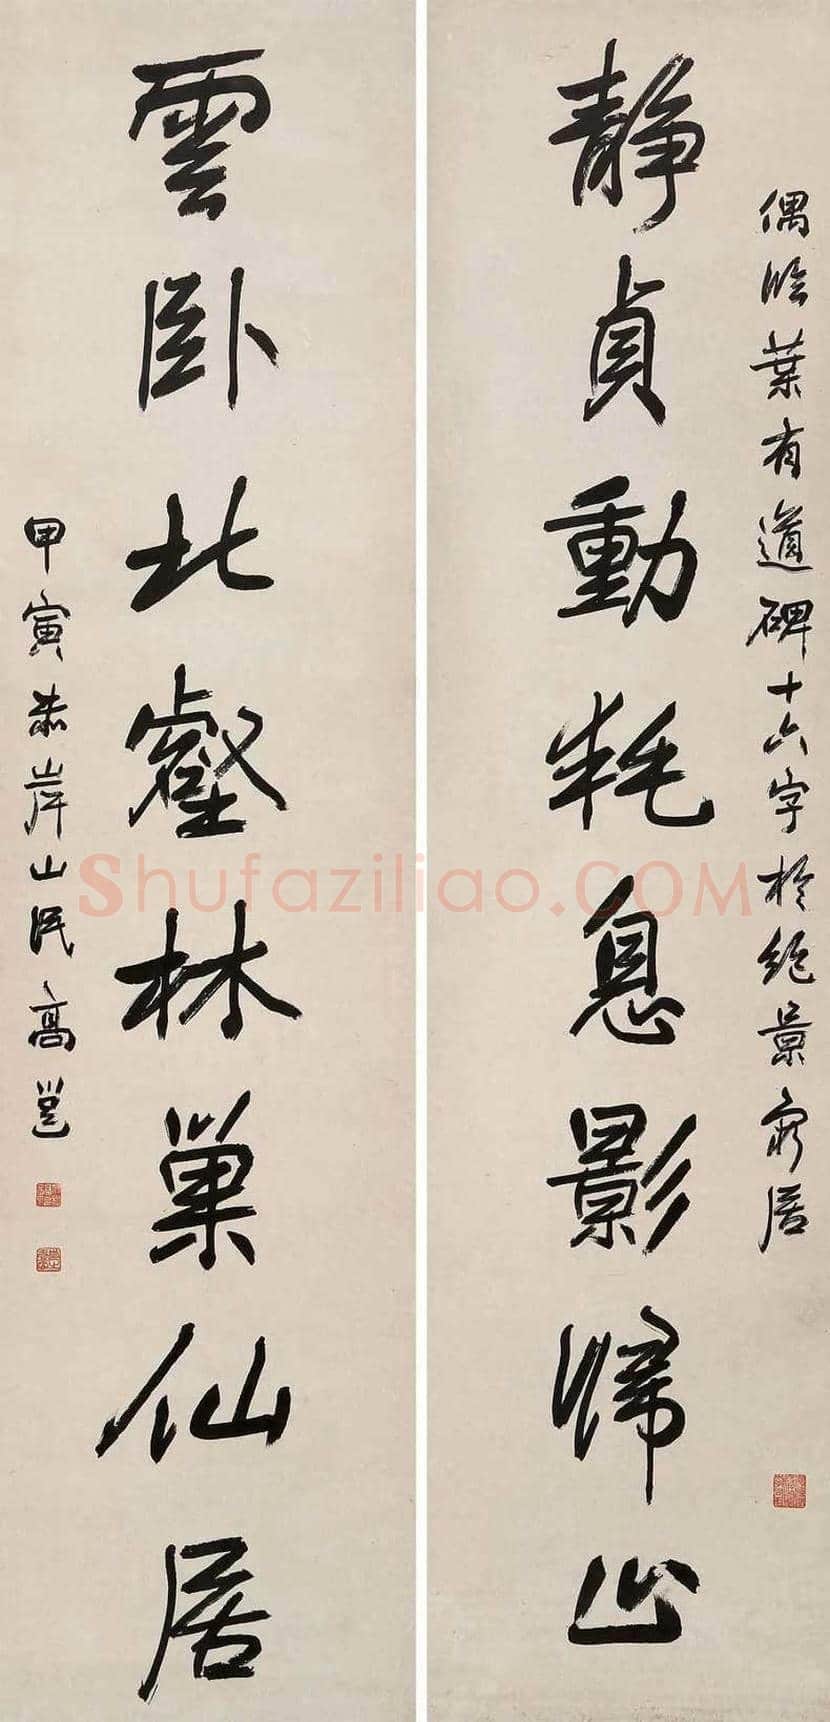 偶臨葉有道碑十六字於絕景窮居
靜貞動耗息影歸山
雲臥北壑林巢仙居
甲寅赤岸山民高邕
Shufaziliao.COM